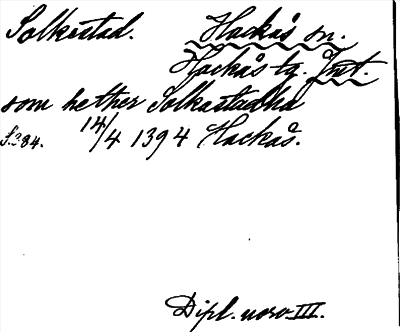 Solkastad. Hackås sn.
Hackås tg. Jmt.
som hether Solkastadha
S.384. 14/4 1394 Hackås.
Dipl. norv. III.